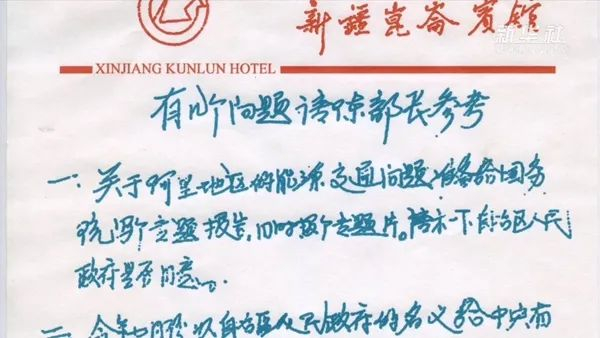 新华社
新疆崑崙賓館
XINJIANG KUNLUN HOTEL
有几个问题请陈部长参考
一、关于阿里地区的能源交通问题准备给国务
院写个专题报告，同时报个专题片。请示一下自治区人民
政府是否同意。
二、今年月份以自治区人民政府的名义给中央有